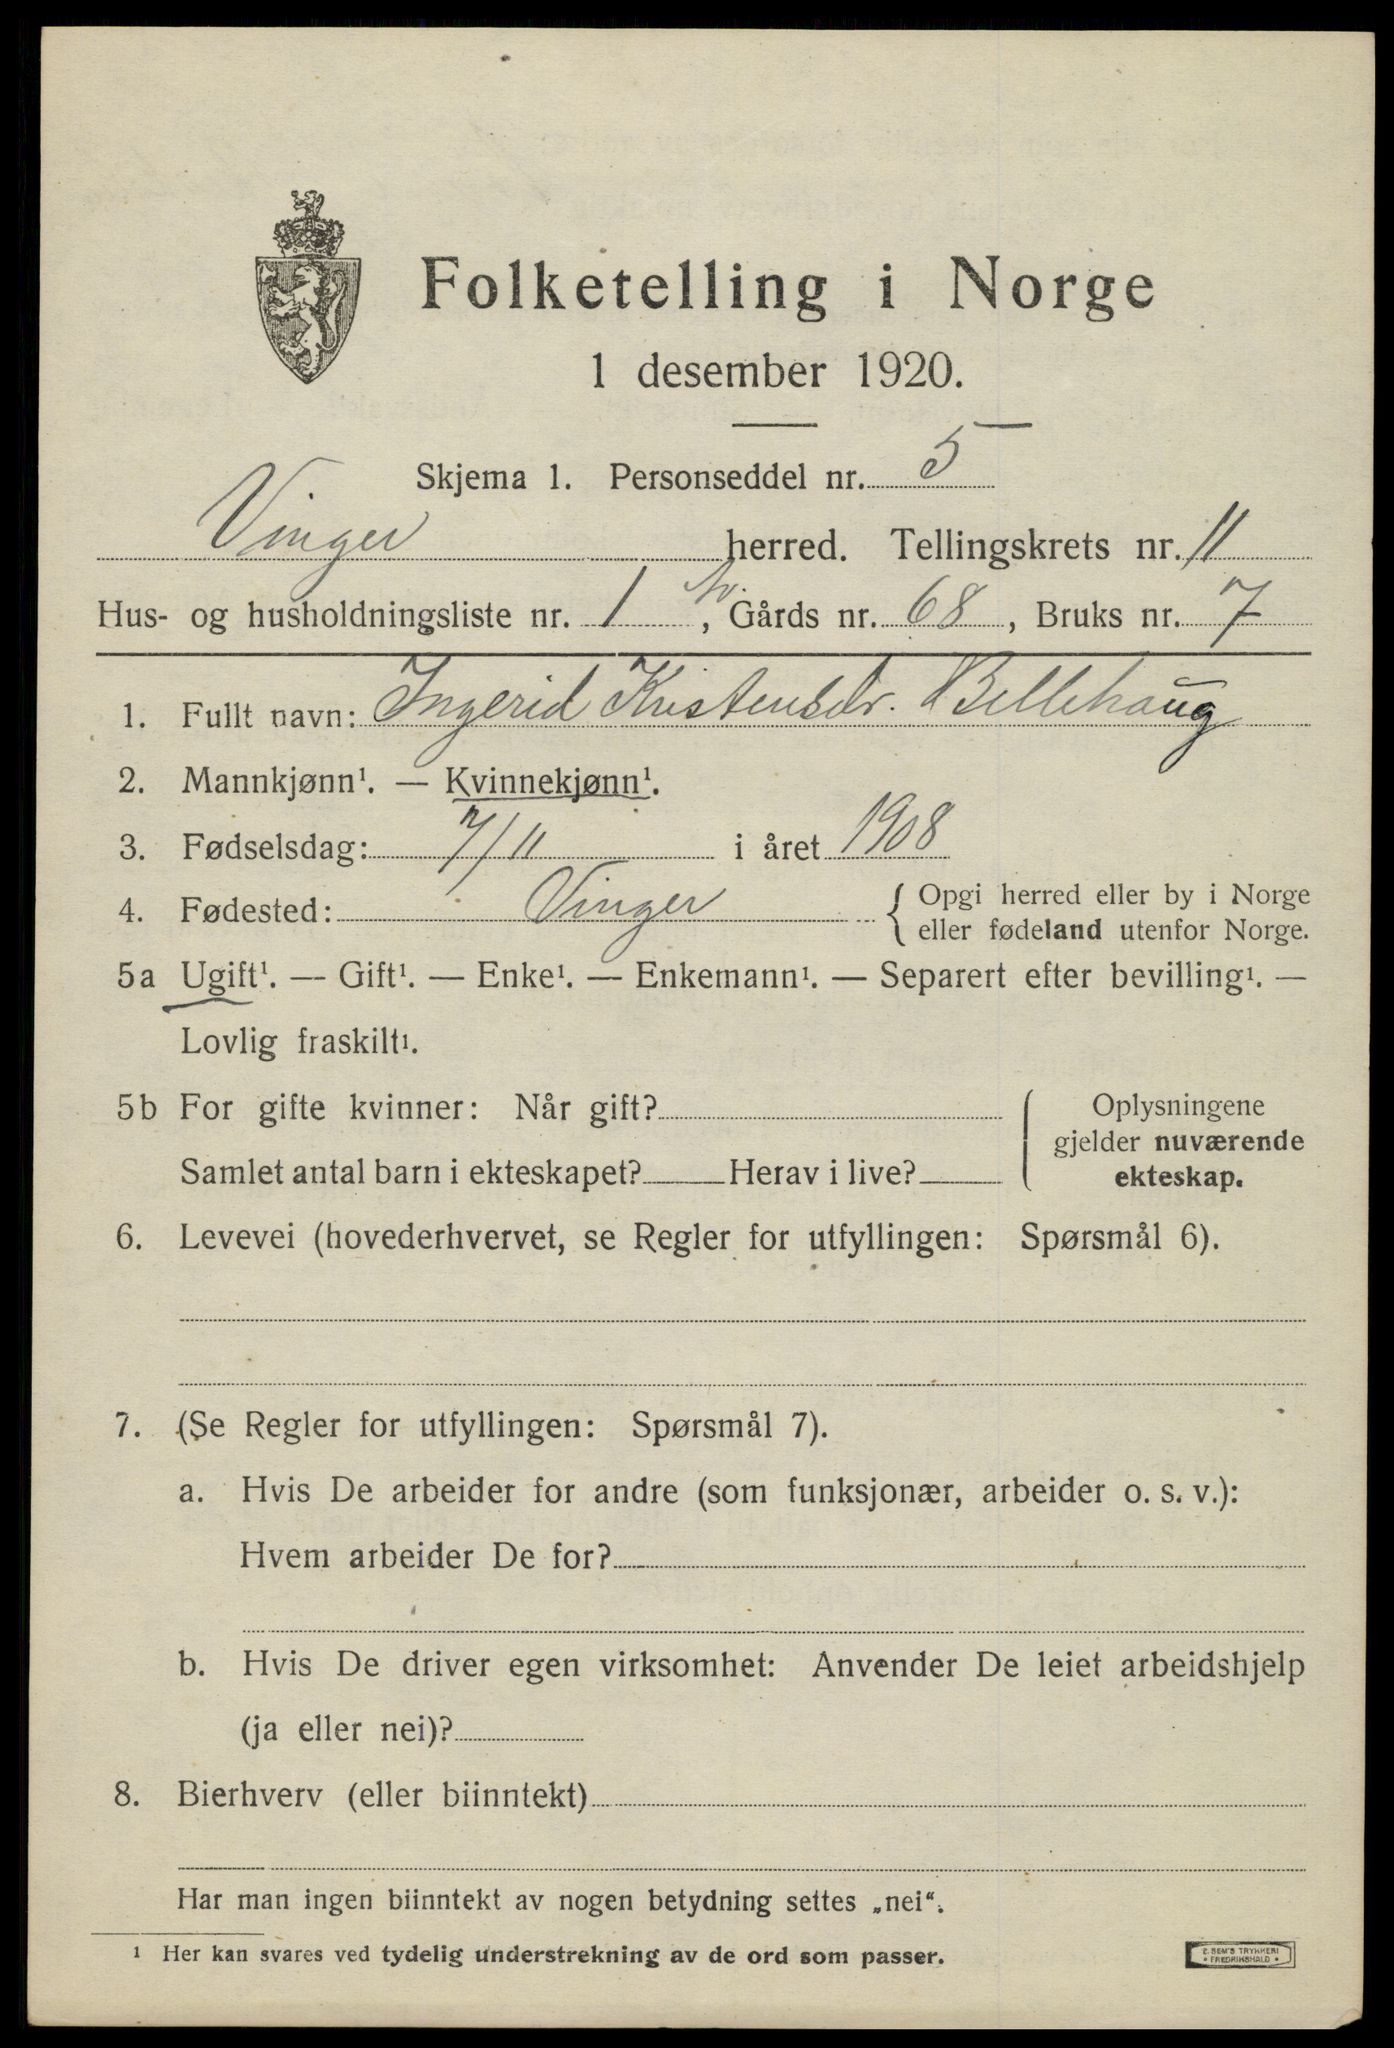 Folketelling i Norge
1 desember 1920.
Skjema 1. Personseddel nr. 5
Vinger herred. Tellingskrets nr. 11
Hus- og husholdningsliste nr. 1, Gårds nr. 68, Bruks nr. 7
1. Fullt navn: Ingerid Kristensdr. Bellehaug
2. Mannkjønn¹. — Kvinnekjønn¹.
3. Fødselsdag: 7/11 i året 1908
4. Fødested: Vinger { Opgi herred eller by i Norge
eller fødeland utenfor Norge.
5a Ugift¹. — Gift¹. — Enke¹. — Enkemann¹. — Separert efter bevilling¹. —
Lovlig fraskilt¹.
5b For gifte kvinner: Når gift?
Samlet antal barn i ekteskapet? Herav i live?
Oplysningene
gjelder nuværende
ekteskap.
6. Levevei (hovederhvervet, se Regler for utfyllingen: Spørsmål 6).
7. (Se Regler for utfyllingen: Spørsmål 7).
a. Hvis De arbeider for andre (som funksjonær, arbeider o. s. v.):
Hvem arbeider De for?
b. Hvis De driver egen virksomhet: Anvender De leiet arbeidshjelp
(ja eller nei)?
8. Bierhverv (eller biinntekt)
Har man ingen biinntekt av nogen betydning settes „nei“.
¹ Her kan svares ved tydelig understrekning av de ord som passer.
E. SEM'S TRYKKERI
• FREDRIKSHALD •